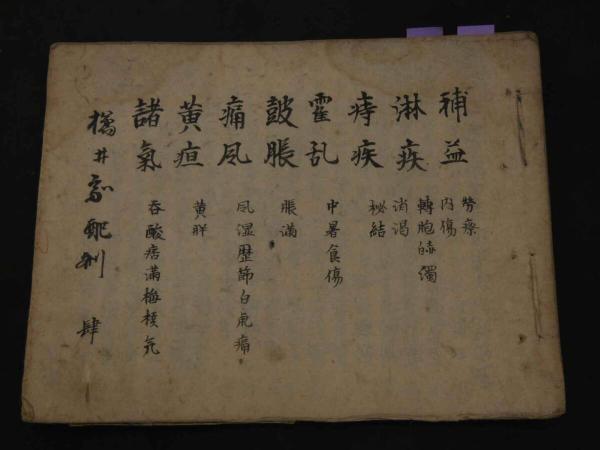 補益
勞瘵
内傷
淋疾
轉胞赤濁
消渴
痔疾
秘結
霍乱
中暑食傷
皷脹
脹滿
痛凨
凨湿歴節白虎痛
黄疸
黄胖
諸氣
吞酸痞滿梅核気
橘井家配剤 肆